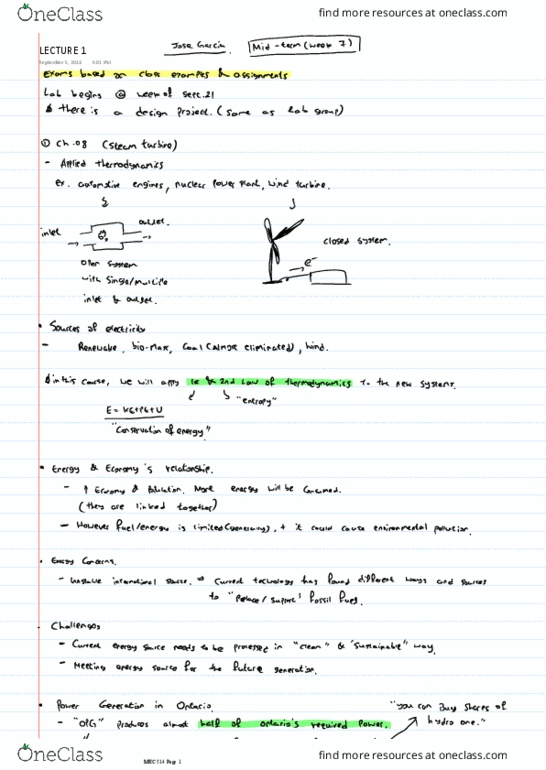 OneClass
find more resources at oneclass.com
LECTURE 1
Jose Garcia
Mid-term (week 7)
September 5, 2018 4:01 PM
Exams based on class examples & assignments
Lab begins @ week of sept.21
& there is a design project. (same as lab group)
① Ch.08 (steam turbine)
- Applied thermodynamics
ex. automotive engines, nuclear power plant, wind turbine.
inlet
outlet.
open system
with single/multiple
inlet & outlet.
e-
closed system.
• Sources of electricity
- Renewable, bio-mass, Coal (almost eliminated), wind.
in this course, we will apply 1st & 2nd law of thermodynamics to the new systems.
"entropy"
E = KE+PE+U
"Conservation of energy"
• Energy & Economy's relationship.
- ↑ Economy & Population, more energy will be consumed.
(they are linked together)
- However fuel/energy is limited, + it could cause environmental pollution.
• Energy Concerns.
- Unstable international source. ⇒ Current technology has found different ways and sources
to "Replace/support" fossil fuel.
• Challenges
- Current energy source needs to be processed in "clean" & "sustainable" way.
- Meeting energy source for the future generation.
• Power Generation in Ontario.
- "OPG" produces almost half of ontario's required power.
"you can buy shares of
hydro one."
OneClass
MEC514 Page 1
find more resources at oneclass.com